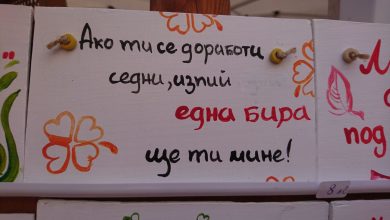 Ако ти се доработи
седни, изпий
една бира
ще ти мине!
под
8лв